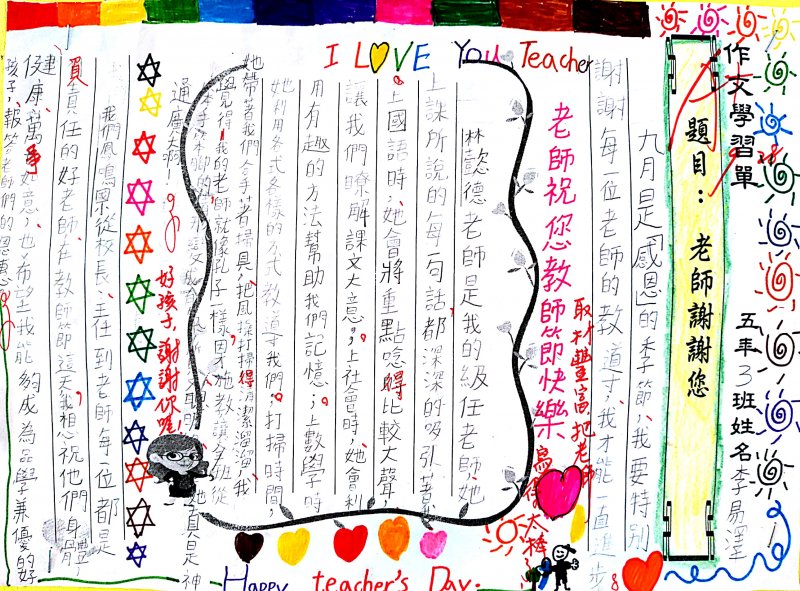 作文學習單
五年3班姓名李易澤
題目：老師謝謝您
I LOVE You Teacher
九月是「感恩」的季節，我要特別
謝謝每一位老師的教導，我才能一直進步
老師祝您教師節快樂
取材豐富，把老師
寫得太棒
林懿德老師是我的級任老師，她
上課所說的每一句話都深深的吸引著
上國語時，她會將重點唸得比較大聲，
讓我們瞭解課文大意。上社會時，她會利
用有趣的方法幫助我們記憶；上數學時
她利用各式各樣的方式教導我們。打掃時間，
她帶著我們合手 著掃具，把風 打掃得 潔溜溜，我
覺得我的老師就像孔子一樣因才施教讓
她真是神
通廣大啊！
好孩子，謝謝你喔！
我們鳳鳴 從校長、主任到老師每一位都是
負責任的好老師，在教師節這天，我想祝他們身體
健康、萬事如意，也希望我能夠成為品學兼優的好
孩子，報答老師們的恩惠。
Happy teacher's Day.